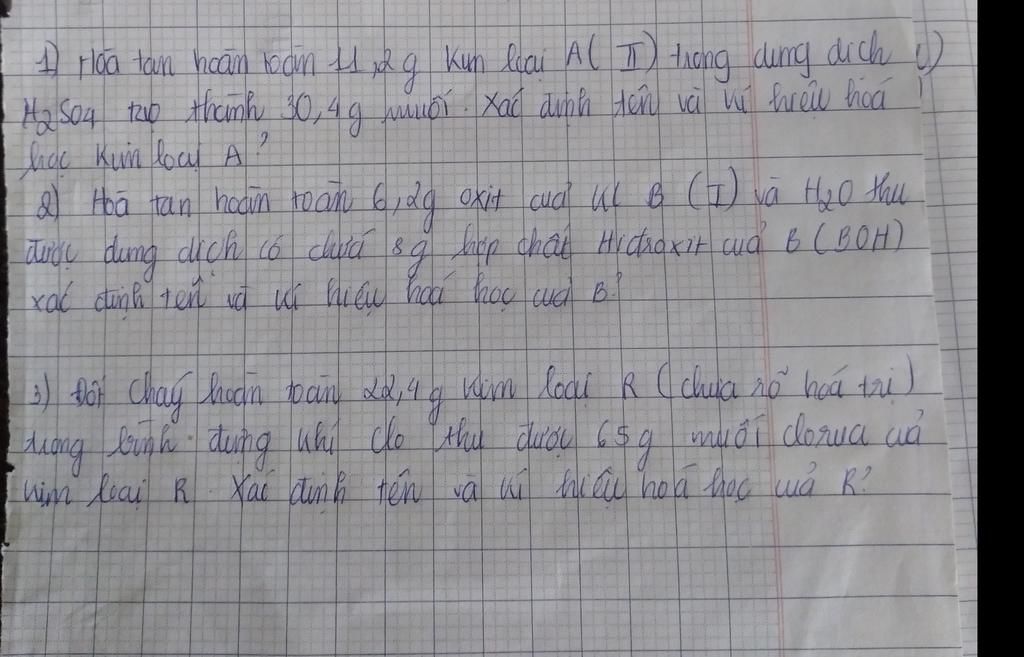 1) Hoà tan hoàn toàn 11,2g Kim loại A( II ) trong dung dịch
H₂SO₄ tạo thành 30,4g muối. Xác định tên và kí hiệu hoá
học Kim loại A?
2) Hoà tan hoàn toàn 6,2g oxit của kl B (I) và H₂O thu
được dung dịch có chứa 8g hợp chất Hiđroxit của B (BOH)
xác định tên và kí hiệu hoá học của B?
3) Đốt cháy hoàn toàn 22,4g kim loại R (chưa rõ hoá trị)
trong bình đựng khí clo thu được 65g muối clorua của
kim loại R. Xác định tên và kí hiệu hoá học của R?